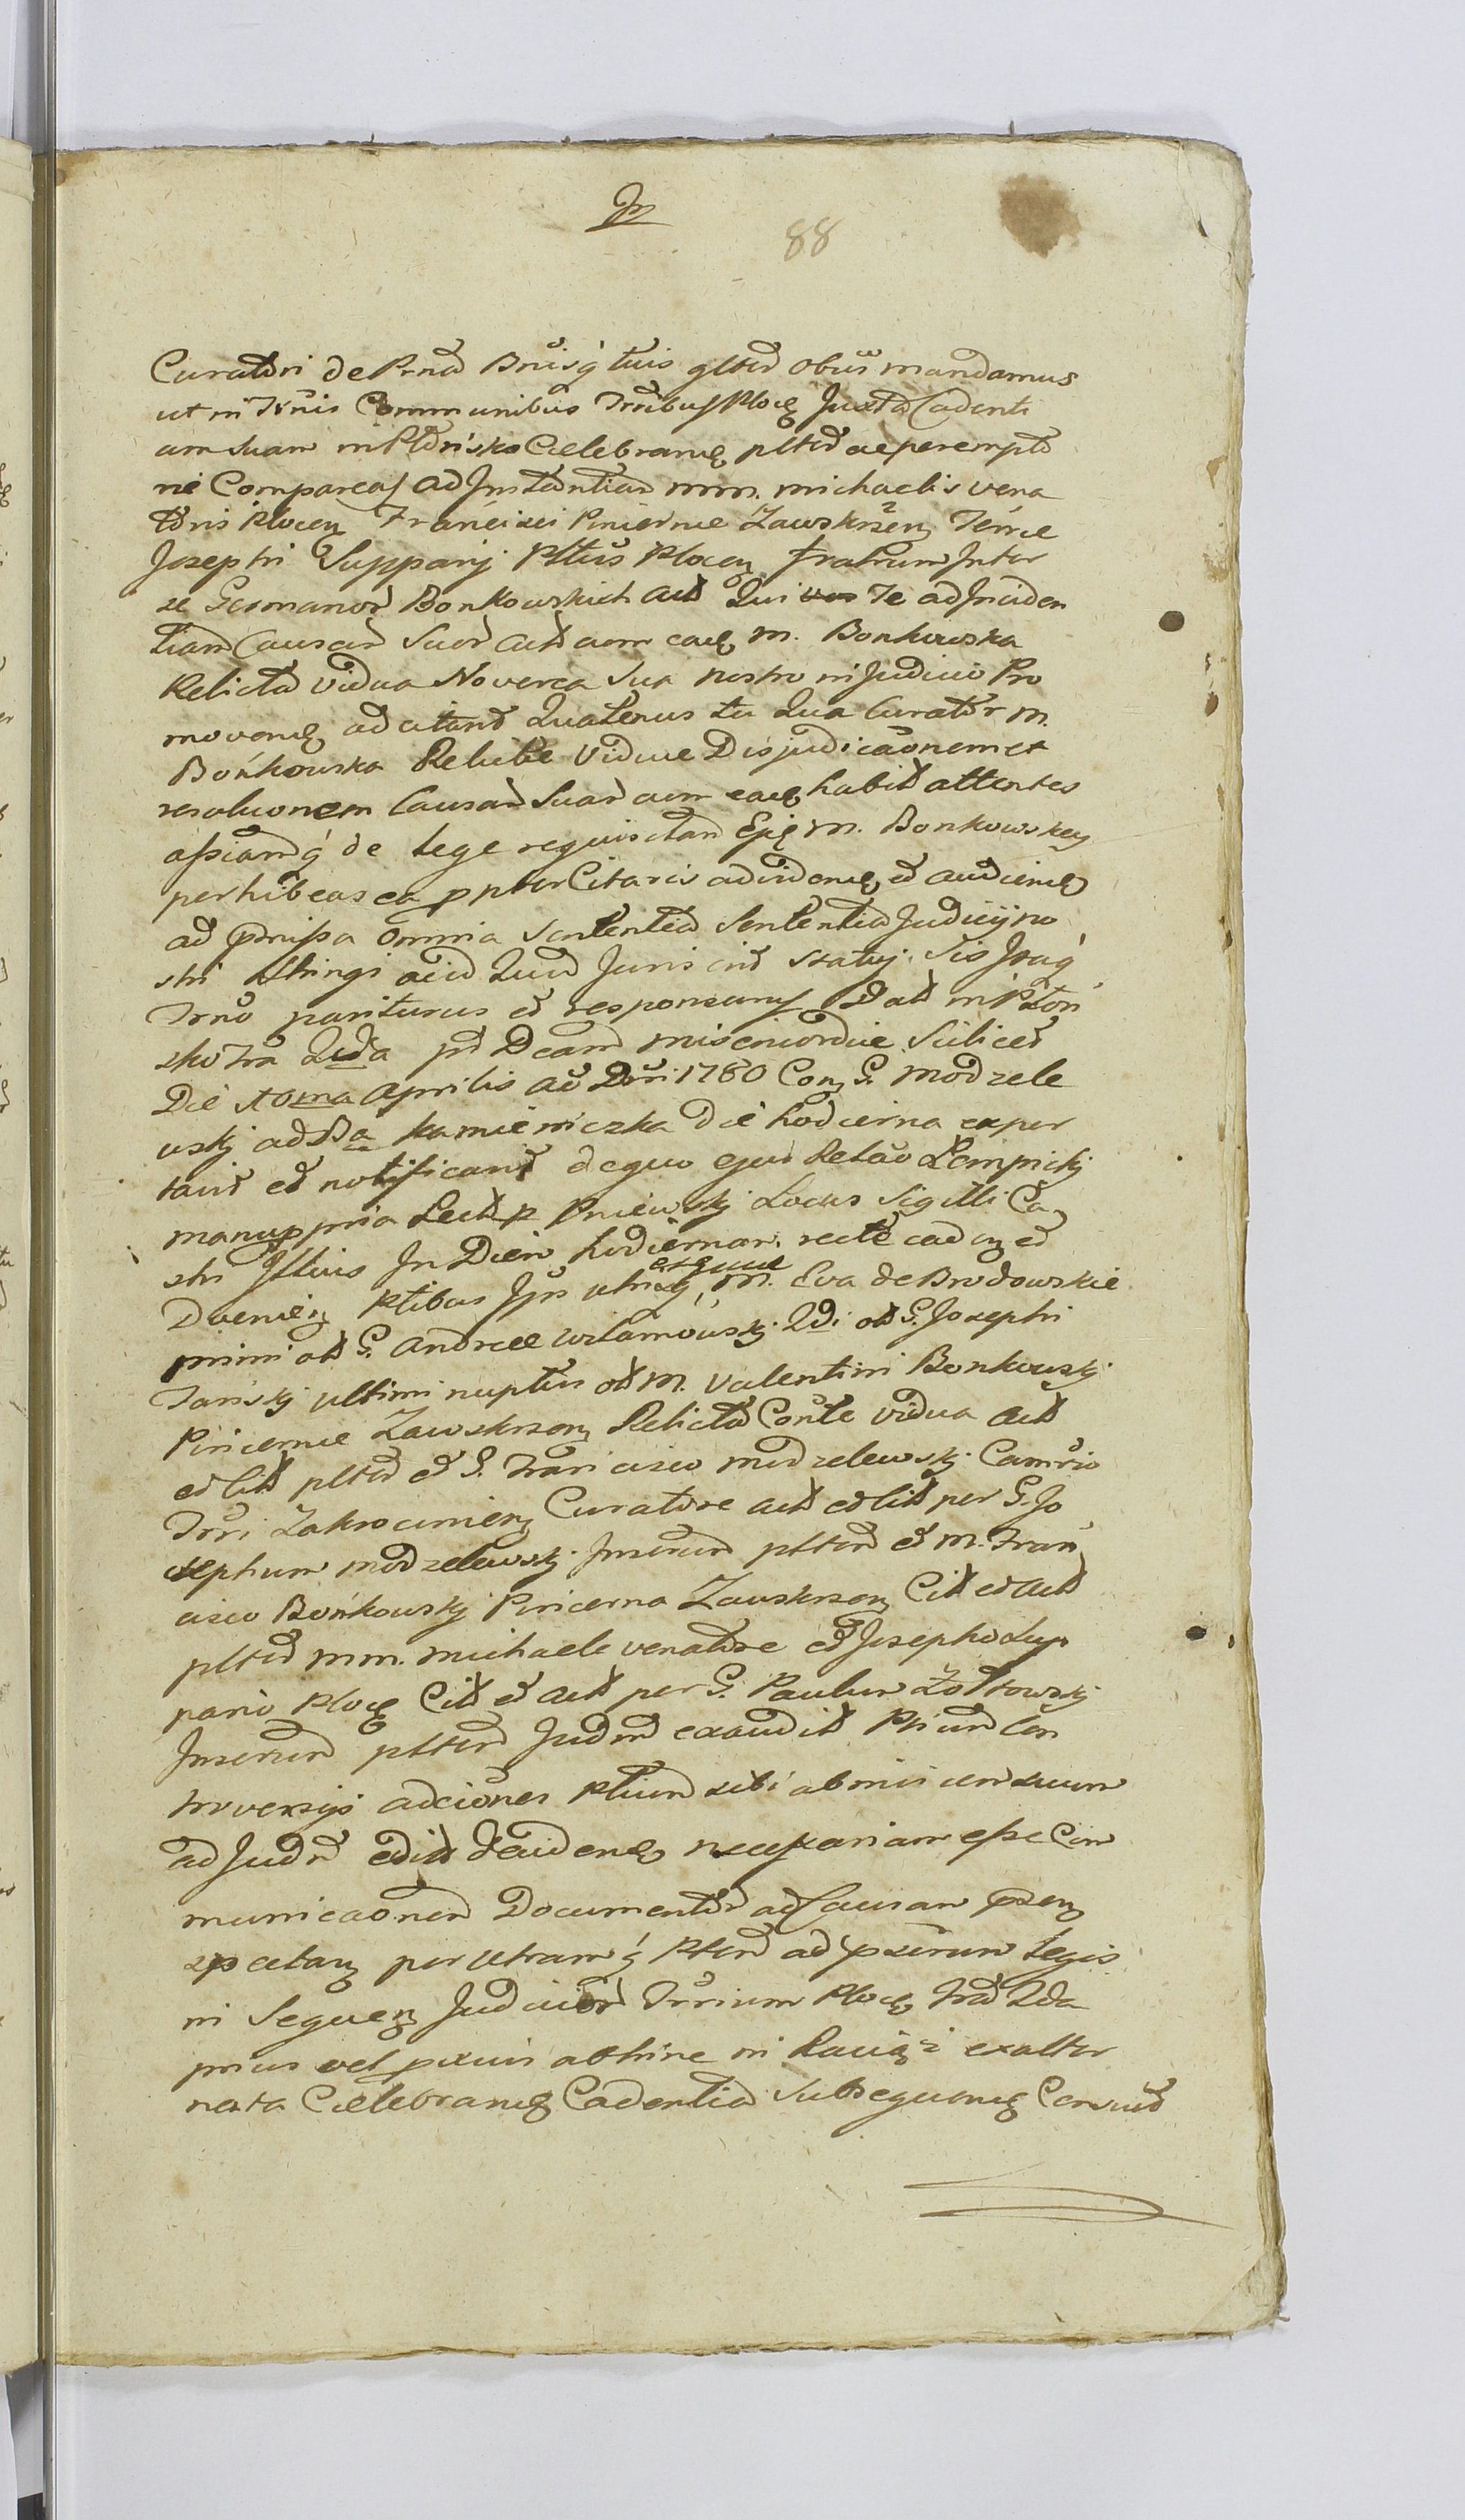 88
Curatori de Psnã Bnisq̃ tuis gltẽr Obũs mandamus
ut in Trũis Communibus Trribus Ploc Juxta Cadenti
am Suam in Płonsko Celebranꝫ pltẽr ac perempto
rie Compareas Ad Instantiam mm. Michaelis Vena
toris Plocen Francisci Pincernae Zawskrzen Terrae
Josephi Supparij Pltũs Plocen Fratrum Inter
se Germanor Bonkowskich Act̃ Qui Te ad Inciden
tiam Causar̃ Suar̃ Act̃ cum eaꝫ M. Bonkowska
Relicta Vidua Noverca Sua nostro in Judicio Pro
movenꝫ ad citand̃ Quatenus tu Qua Curator M.
Bońkowska Relictae Viduae Disjudicãonem et
resoluonem Causar̃ Suar̃ cum eaꝫ habit̃ attentes
assiam q̃ de lege requisitam Ejꝫ M. Bonkowskey
perhibeas ea ppter Citaris ad videnꝫ et̃ audienꝫ
ad pmissa Omnia Sententiã Sententiã Judicij no
stri Stringi aliud Quid Juris erit̃ Statuj Sis Itaq̃
Trno pariturus et̃ responsurus Dat̃ in Płon
sko Fra 2da pt̃ Dcam Misericordiae Scilicet̃
Die 10ma Aprilis Ao Dñi 1780 Con G. Modzele
wskj ad Bа kamieniczka Die hodierna expor
tavit̃ et̃ notificavit̃ de quo ejus Relão Lempickj
manu ppria Lect̃ p Pniewskj Locus Sigilli Ca
stri Illius In Diem hodiernam recte cad et̃
Dvenien Ptibus Ipis utrisq̃, exquae M. Eva de Brodowskie
primi ot̃ G. Andreae Wilamowskj 2di ot̃ G. Josephi
Tanskj ultimi nuptus ot̃ M. Valentini Bonkowskj
Pincernae Zawskrzen Relicta Conte Vidua Act̃
et̃ Cit̃ pltẽr et̃ G. Francisco Modzelewskj Camrio
Trri Zakrocimien Curatore Act̃ et̃ Cit̃ per G. Jo
sephum Modzelewskj Inserun pltẽr et̃ M. Fran
cisco Bońkowskj Pincerna Zawskrzen Cit̃ et̃ Act̃
pltẽr mm. Michaele Venatore et̃ Josepho Sup
pario Ploc Cit̃ et̃ Act̃ per G. Paulum Żołtowskj
Inserun pltẽr Judm exaudit̃ Ptium Con
troversijs adciones Ptium sibi ab invicem suum
ad Judm edit̃ Decidenꝫ necessariam esse Com
municãonem Documentor̃ ad Causam psen
spectan per utramq̃ Ptem ad pscriptum legis
in Sequen Judicior̃ Trrium Ploc Fra 2da
prius vel pxius abhinc in Raciąż ex alter
nata Celebranꝫ Cadentiã Subsequenꝫ Censuit̃